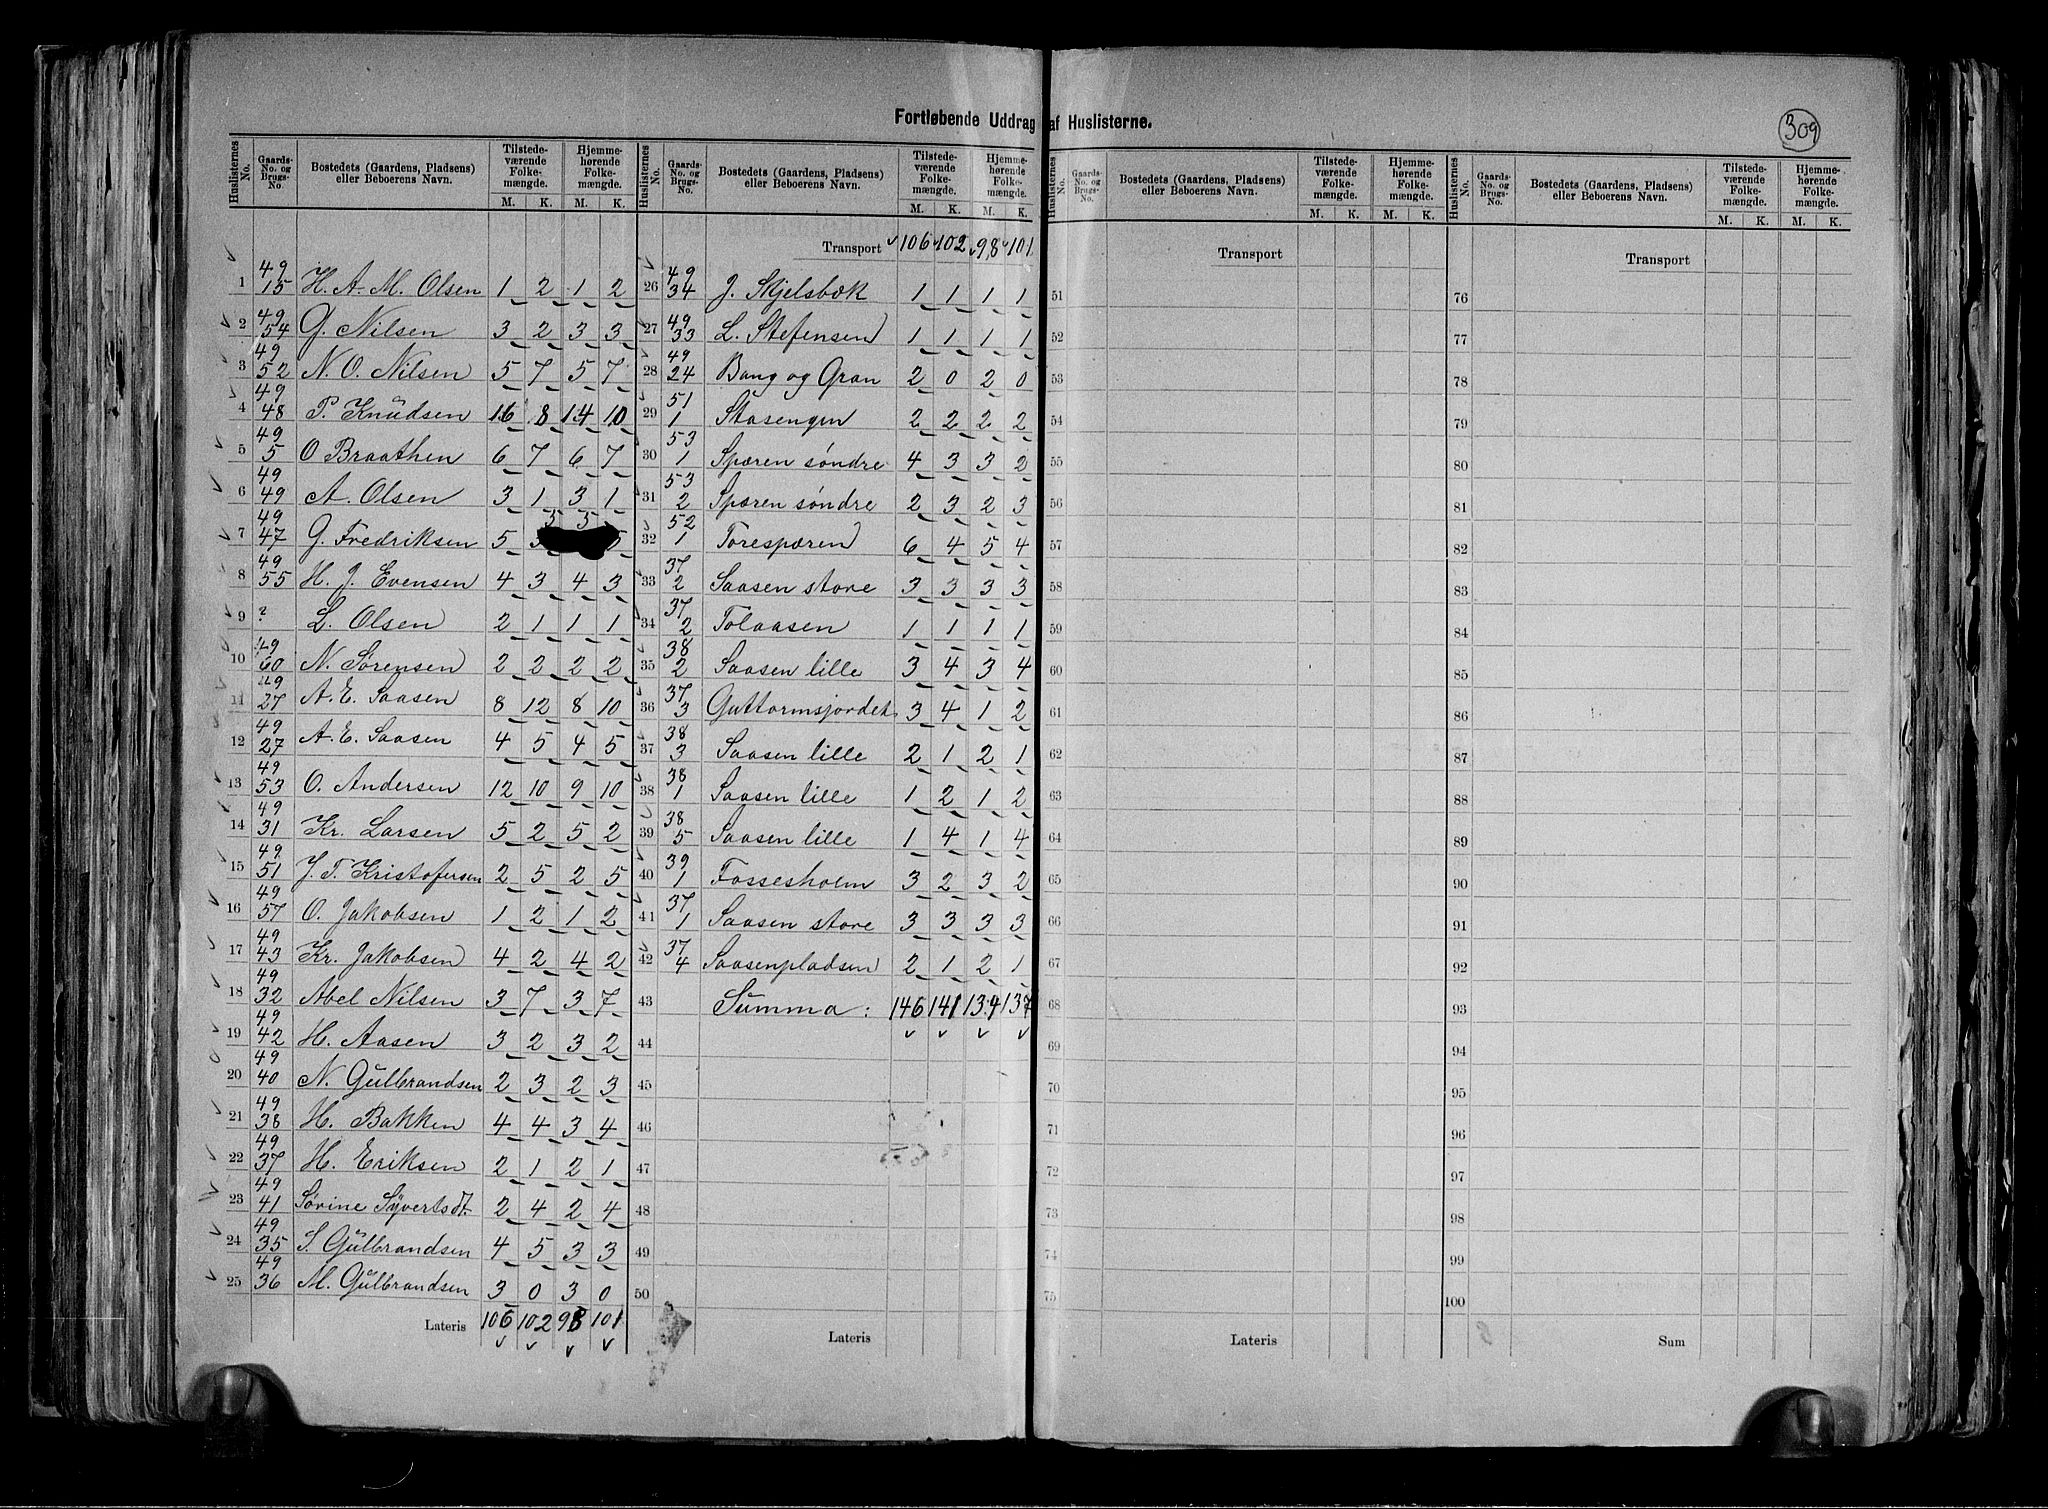 Fortløbende Uddrag af Huslisterne.
309
Huslisternes No. | Gaards-No. og Brugs-No. | Bostedets (Gaardens, Pladsens) eller Beboerens Navn. | Tilstedeværende Folkemængde. M. K. | Hjemmehørende Folkemængde. M. K.
1 49 15 H. A. M. Olsen 1 2 1 2
2 49 54 G. Nilsen 3 2 3 3
3 49 52 N. O. Nilsen 5 7 5 7
4 49 48 P. Knudsen 16 8 14 10
5 49 5 O Braathen 6 7 6 7
6 49 49 A. Olsen 3 1 3 1
7 49 47 G. Fredriksen 5 5 5 5
8 49 55 H. J. Evensen 4 3 4 3
9 ? L. Olsen 2 1 1 1
10 49 60 N. Sørensen 2 2 2 2
11 49 27 A. E. Saasen 8 12 8 10
12 49 27 A. E. Saasen 4 5 4 5
13 49 53 O. Andersen 12 10 9 10
14 49 31 Kr. Larsen 5 2 5 2
15 49 51 J. T. Kristofersen 2 5 2 5
16 49 57 O. Jakobsen 1 2 1 2
17 49 43 Kr. Jakobsen 4 2 4 2
18 49 32 Abel Nilsen 3 7 3 7
19 49 42 H. Aasen 3 2 3 2
20 49 40 N. Gulbrandsen 2 3 2 3
21 49 38 H. Bakken 4 4 3 4
22 49 37 H. Eriksen 2 1 2 1
23 49 41 Sørine Syvertsdt. 2 4 2 4
24 49 35 S. Gulbrandsen 4 5 3 3
25 49 36 M. Gulbrandsen 3 0 3 0
Lateris 106 102 98 101
Huslisternes No. | Gaards-No. og Brugs-No. | Bostedets (Gaardens, Pladsens) eller Beboerens Navn. | Tilstedeværende Folkemængde. M. K. | Hjemmehørende Folkemængde. M. K.
Transport 106 102 98 101
26 49 34 J. Skjelsbæk 1 1 1 1
27 49 33 L. Stefensen 1 1 1 1
28 49 24 Bang og Gran 2 0 2 0
29 51 1 Stasengen 2 2 2 2
30 53 1 Spæren søndre 4 3 3 2
31 53 2 Spæren søndre 2 3 2 3
32 52 1 Torespæren 6 4 5 4
33 37 2 Saasen store 3 3 3 3
34 37 2 Tolaasen 1 1 1 1
35 38 2 Saasen lille 3 4 3 4
36 37 3 Guttormsjordet 3 4 1 2
37 38 3 Saasen lille 2 1 2 1
38 38 1 Saasen lille 1 2 1 2
39 38 5 Saasen lille 1 4 1 4
40 39 1 Fossesholm 3 2 3 2
41 37 1 Saasen store 3 3 3 3
42 37 4 Saasenpladsen 2 1 2 1
43 Summa: 146 141 134 137
44
45
46
47
48
49
50
Lateris
Huslisternes No. | Gaards-No. og Brugs-No. | Bostedets (Gaardens, Pladsens) eller Beboerens Navn. | Tilstedeværende Folkemængde. M. K. | Hjemmehørende Folkemængde. M. K.
Transport
51
52
53
54
55
56
57
58
59
60
61
62
63
64
65
66
67
68
69
70
71
72
73
74
75
Lateris
Huslisternes No. | Gaards-No. og Brugs-No. | Bostedets (Gaardens, Pladsens) eller Beboerens Navn. | Tilstedeværende Folkemængde. M. K. | Hjemmehørende Folkemængde. M. K.
Transport
76
77
78
79
80
81
82
83
84
85
86
87
88
89
90
91
92
93
94
95
96
97
98
99
100
Sum